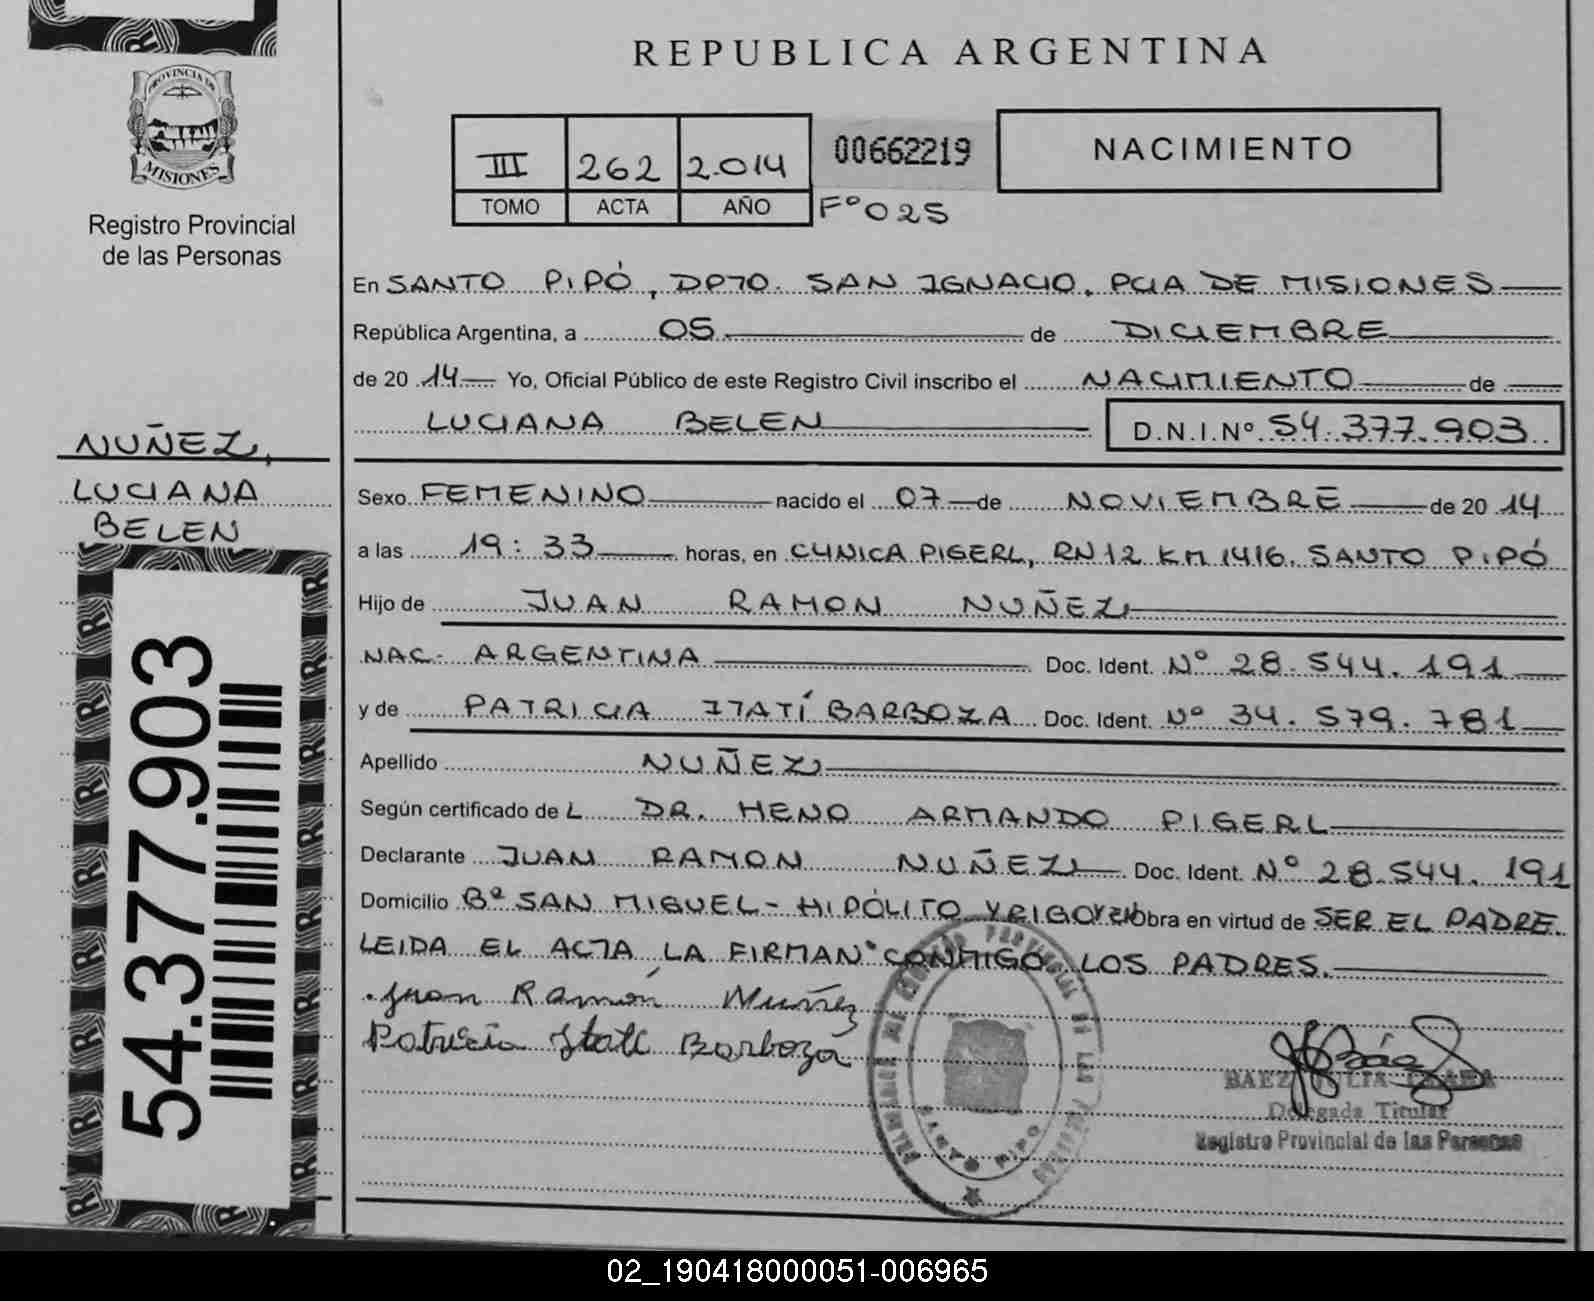 REPUBLICA ARGENTINA
PROVINCIA DE
MISIONES
Registro Provincial
de las Personas
III 262 2.014 00662219 NACIMIENTO
TOMO ACTA AÑO Fº 025
En SANTO PIPÓ, DPTO. SAN IGNACIO, PCIA DE MISIONES
República Argentina, a 05 de DICIEMBRE
de 20 14 Yo, Oficial Público de este Registro Civil inscribo el NACIMIENTO de
LUCIANA BELEN D.N.I.Nº 54.377.903
NUÑEZ,
LUCIANA
BELEN
Sexo FEMENINO nacido el 07 de NOVIEMBRE de 20 14
a las 19:33 horas, en CLINICA PIGERL, RN 12 KM 1416. SANTO PIPÓ
Hijo de JUAN RAMON NUÑEZ
NAC. ARGENTINA Doc. Ident. Nº 28.544.191
y de PATRICIA ITATÍ BARBOZA Doc. Ident. Nº 34.579.781
Apellido NUÑEZ
Según certificado de L DR. HENO ARMANDO PIGERL
Declarante JUAN RAMON NUÑEZ Doc. Ident. Nº 28.544.191
Domicilio Bº SAN MIGUEL - HIPÓLITO YRIGOYEN obra en virtud de SER EL PADRE.
LEIDA EL ACTA LA FIRMAN CONMIGO LOS PADRES.
Juan Ramón Nuñez
Patricia Itatí Barboza
54.377.903
SANTO PIPO
Báez
BAEZ JULIA CLARA
Delegada Titular
Registro Provincial de las Personas
02_190418000051-006965